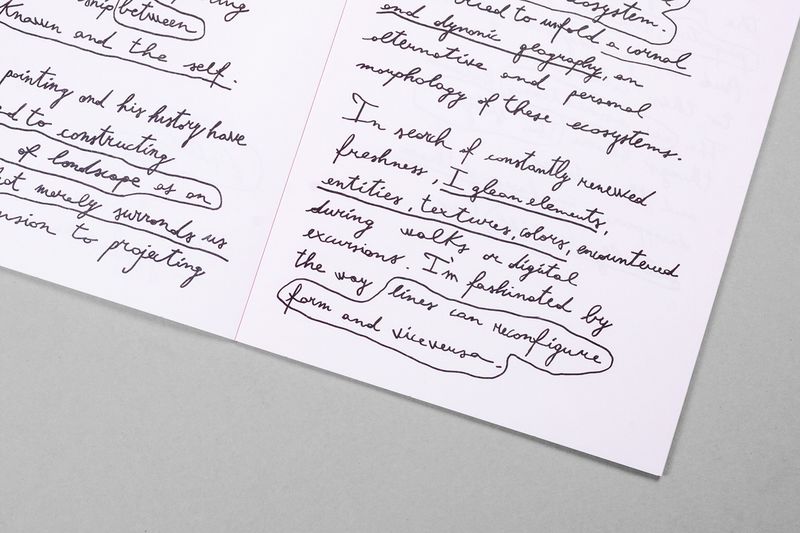 between
Known and the self.
painting and his history have
to constructing
of landscape as an
merely surrounds us
to projecting
ecosystem.
to unfold a carnal
and dynamic geography, an
alternative and personal
morphology of these ecosystems.
In search of constantly renewed
freshness, I glean elements,
entities, textures, colors, encountered
during walks or digital
excursions. I'm fashinated by
the way lines can reconfigure
form and viceversa.